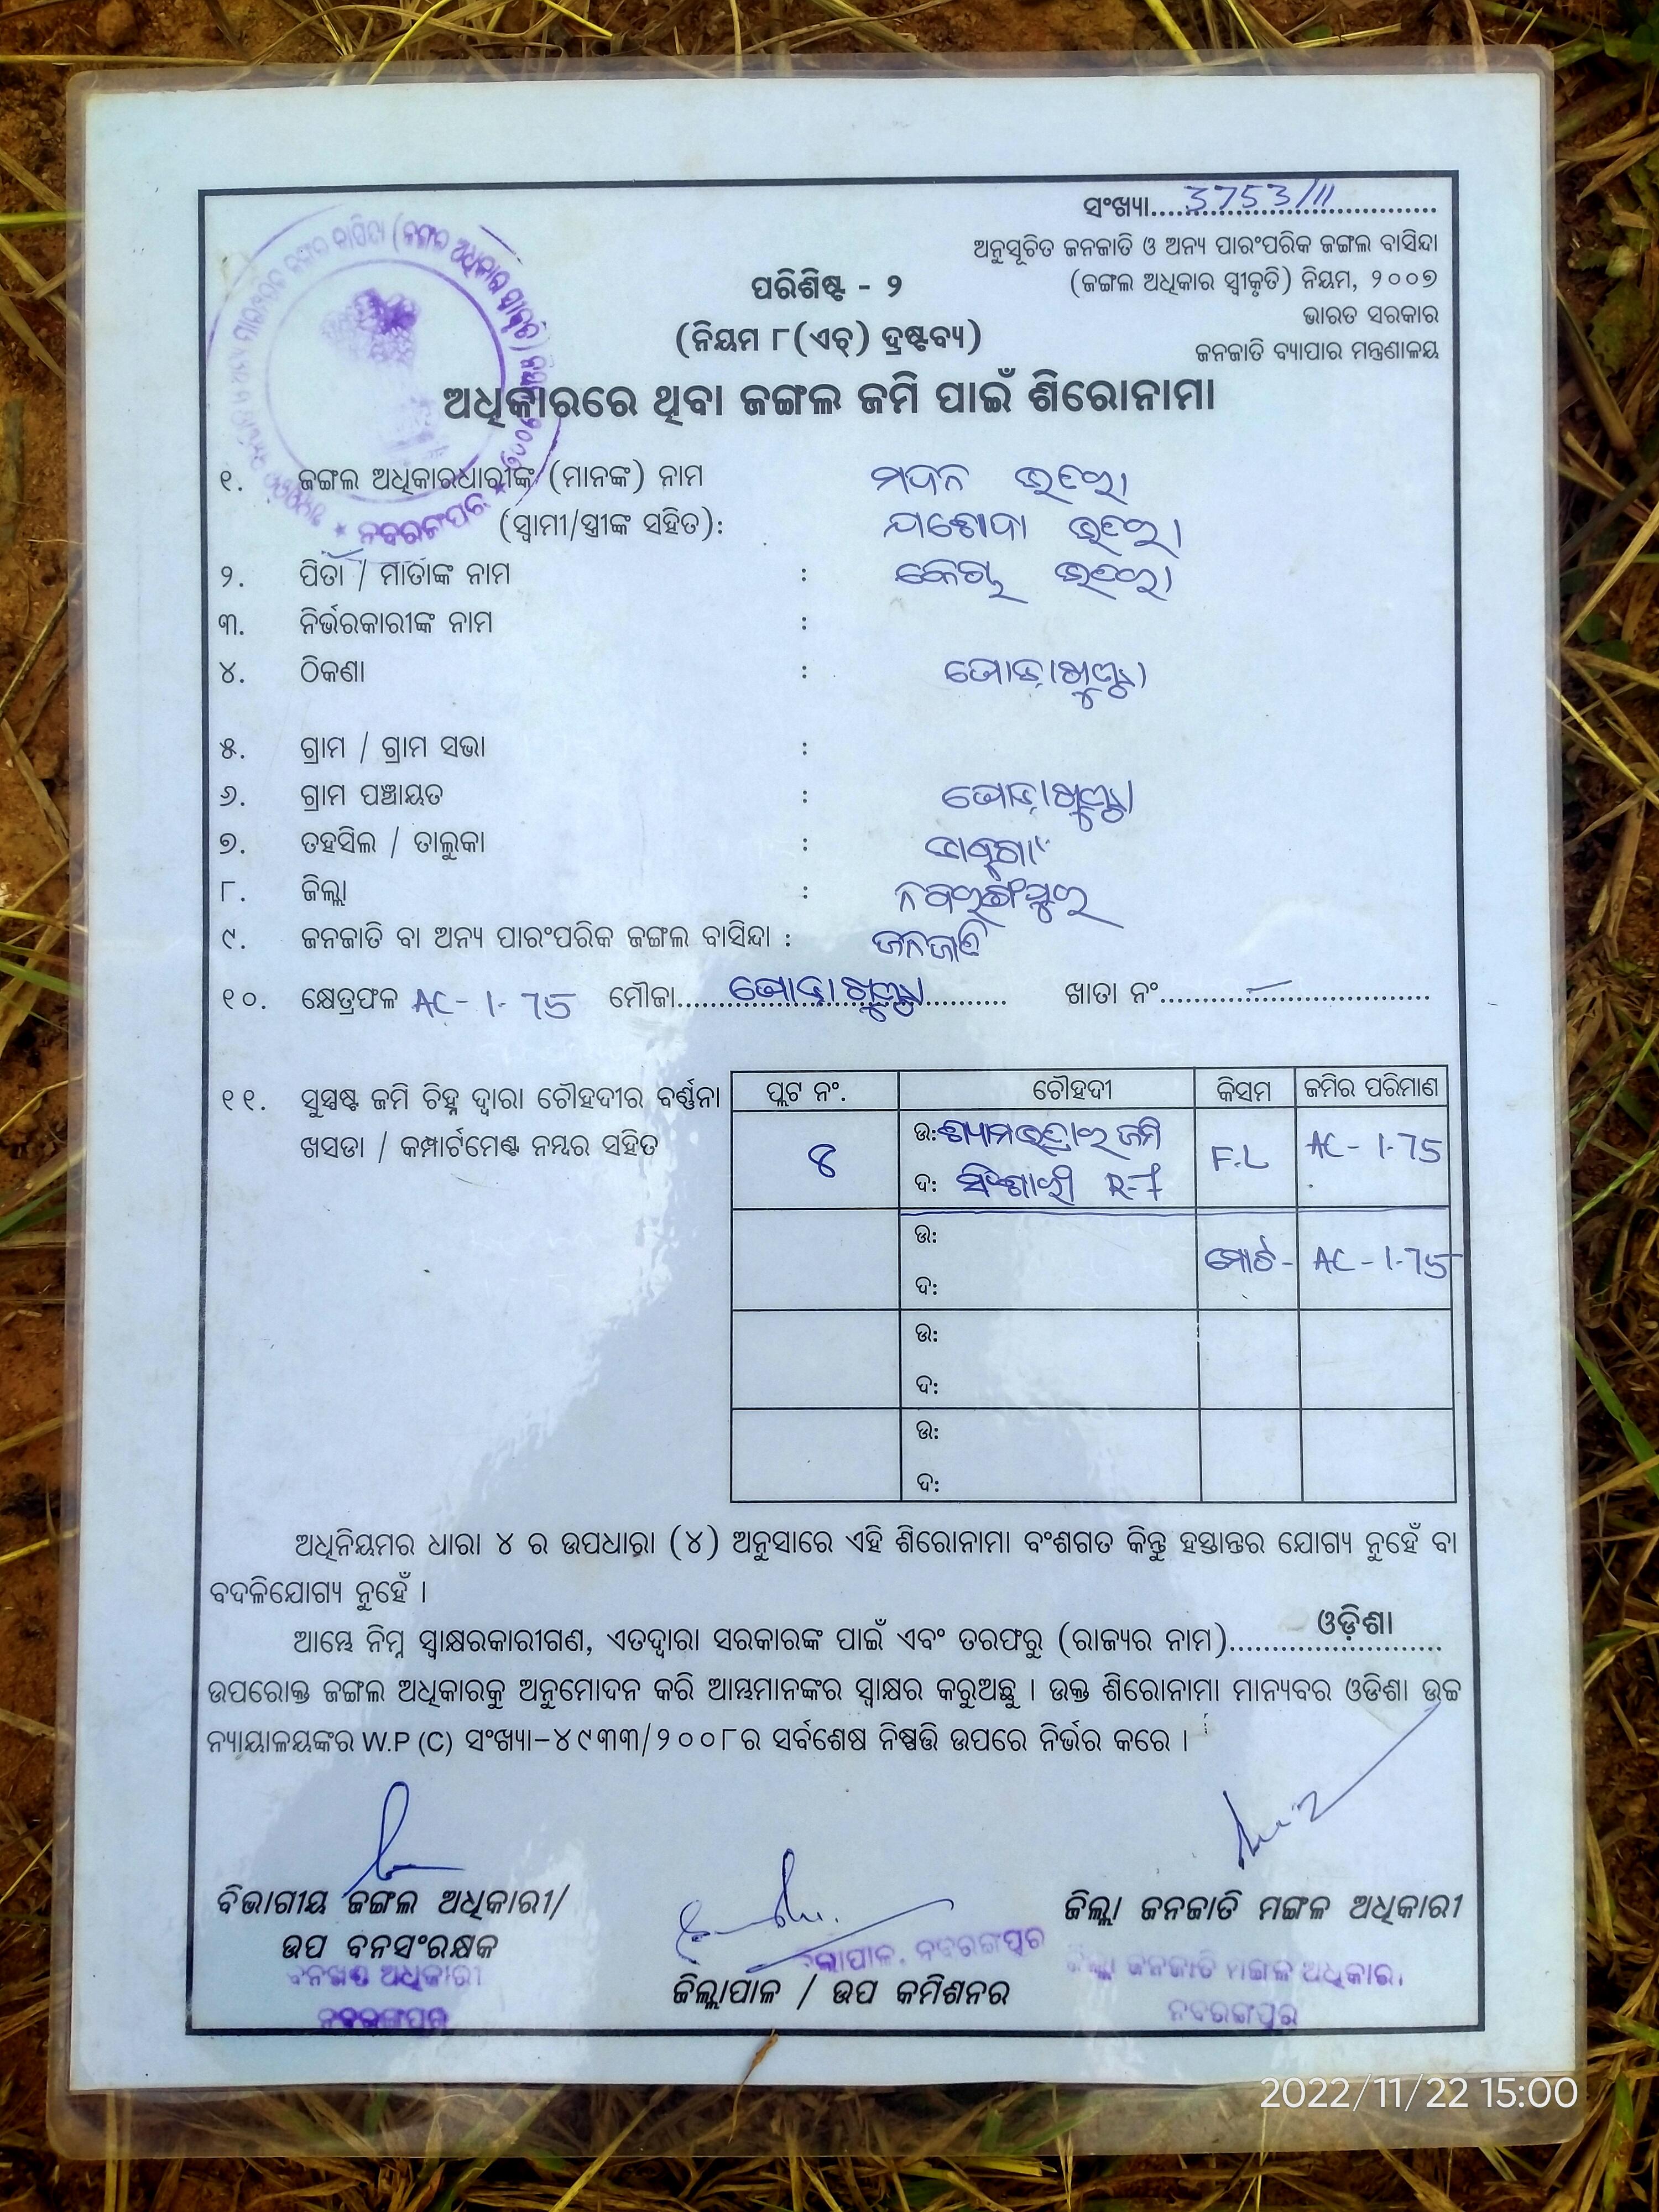 ସଂଖ୍ୟା................................. 3753/11
ଅନୁସୂଚିତ ଜନଜାତି ଓ ଅନ୍ୟ ପାରଂପରିକ ଜଙ୍ଗଲ ବାସିନ୍ଦା
(ଜଙ୍ଗଲ ଅଧିକାର ସ୍ୱୀକୃତି) ନିୟମ, ୨୦୦୭
ଭାରତ ସରକାର
ଜନଜାତି ବ୍ୟାପାର ମନ୍ତ୍ରଣାଳୟ
ପରିଶିଷ୍ଟ - ୨
(ନିୟମ ୮(ଏଚ୍) ଦ୍ରଷ୍ଟବ୍ୟ)
ଅଧିକାରରେ ଥିବା ଜଙ୍ଗଲ ଜମି ପାଇଁ ଶିରୋନାମା
୧. ଜଙ୍ଗଲ ଅଧିକାରଧାରୀଙ୍କ (ମାନଙ୍କ) ନାମ ମଦନ ଭତରା
(ସ୍ୱାମୀ/ସ୍ତ୍ରୀଙ୍କ ସହିତ): ଯଶୋଦା ଭତରା
୨. ପିତା / ମାତାଙ୍କ ନାମ : ଭତରା
୩. ନିର୍ଭରକାରୀଙ୍କ ନାମ :
୪. ଠିକଣା :
୫. ଗ୍ରାମ / ଗ୍ରାମ ସଭା :
୬. ଗ୍ରାମ ପଞ୍ଚାୟତ :
୭. ତହସିଲ / ତାଲୁକା :
୮. ଜିଲ୍ଲା : ନବରଙ୍ଗପୁର
୯. ଜନଜାତି ବା ଅନ୍ୟ ପାରଂପରିକ ଜଙ୍ଗଲ ବାସିନ୍ଦା : ଜନଜାତି
୧୦. କ୍ଷେତ୍ରଫଳ AC - 1.75 ମୌଜା................................. ଖାତା ନଂ................................
୧୧. ସୁସ୍ପଷ୍ଟ ଜମି ଚିହ୍ନ ଦ୍ୱାରା ଚୌହଦୀର ବର୍ଣ୍ଣନା
ଖସଡା / କମ୍ପାର୍ଟମେଣ୍ଟ ନମ୍ବର ସହିତ
ପ୍ଲଟ ନଂ. ଚୌହଦୀ କିସମ ଜମିର ପରିମାଣ
ଉ: ଜମି
8 F.L AC - 1.75
ଦ:
ଉ:
ମୋଟ - AC - 1.75
ଦ:
ଉ:
ଦ:
ଉ:
ଦ:
ଅଧିନିୟମର ଧାରା ୪ ର ଉପଧାରା (୪) ଅନୁସାରେ ଏହି ଶିରୋନାମା ବଂଶଗତ କିନ୍ତୁ ହସ୍ତାନ୍ତର ଯୋଗ୍ୟ ନୁହେଁ ବା
ବଦଳିଯୋଗ୍ୟ ନୁହେଁ ।
ଆମ୍ଭେ ନିମ୍ନ ସ୍ୱାକ୍ଷରକାରୀଗଣ, ଏତଦ୍ୱାରା ସରକାରଙ୍କ ପାଇଁ ଏବଂ ତରଫରୁ (ରାଜ୍ୟର ନାମ)......................... ଓଡ଼ିଶା
ଉପରୋକ୍ତ ଜଙ୍ଗଲ ଅଧିକାରକୁ ଅନୁମୋଦନ କରି ଆମ୍ଭମାନଙ୍କର ସ୍ୱାକ୍ଷର କରୁଅଛୁ । ଉକ୍ତ ଶିରୋନାମା ମାନ୍ୟବର ଓଡିଶା ଉଚ୍ଚ
ନ୍ୟାୟାଳୟଙ୍କର W.P (C) ସଂଖ୍ୟା-୪୯୩୩/୨୦୦୮ର ସର୍ବଶେଷ ନିଷ୍ପତ୍ତି ଉପରେ ନିର୍ଭର କରେ ।
ବିଭାଗୀୟ ଜଙ୍ଗଲ ଅଧିକାରୀ/
ଉପ ବନସଂରକ୍ଷକ
ବନଖଣ୍ଡ ଅଧିକାରୀ
ନବରଙ୍ଗପୁର
ନବରଙ୍ଗପୁର
ଜିଲ୍ଲାପାଳ / ଉପ କମିଶନର
ଜିଲ୍ଲା ଜନଜାତି ମଙ୍ଗଳ ଅଧିକାରୀ
ଜିଲ୍ଲା ଜନଜାତି ମଙ୍ଗଳ ଅଧିକାରୀ
ନବରଙ୍ଗପୁର
2022/11/22 15:00